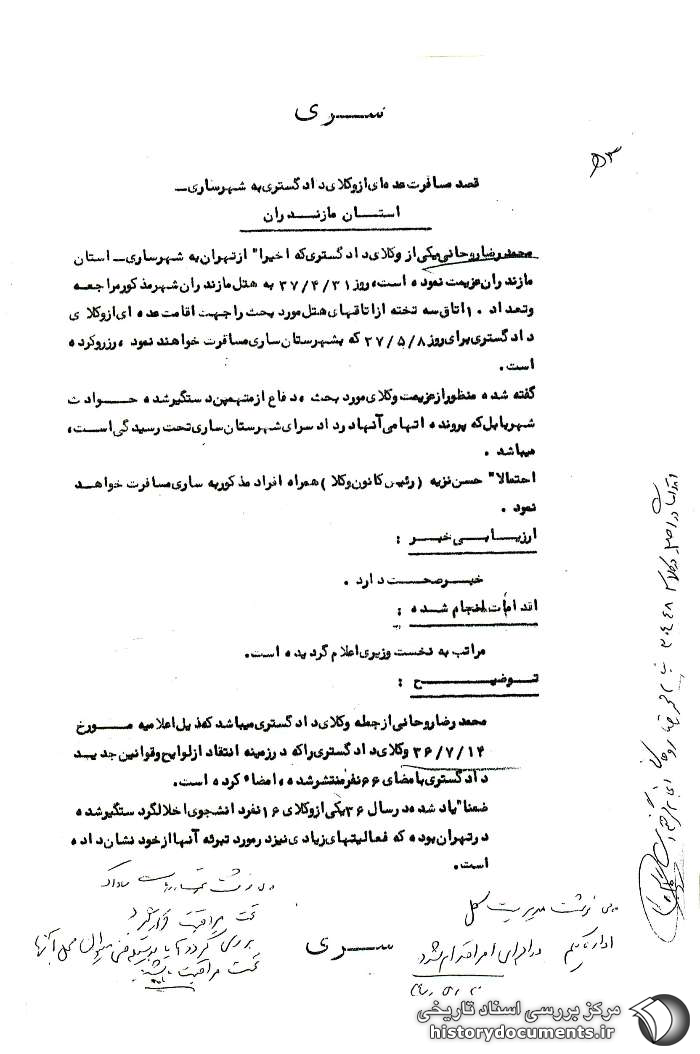 ســـری
قصد مسافرت عده‌ای از وکلای دادگستری به شهر ساری ـ
استــان مازنــدران
محمد رضا روحانی یکی از وکلای دادگستری که اخیرا" از تهران به شهر ساری ـ استان
مازندران عزیمت نموده است، روز ۳۷/۴/۳۱ به هتل مازندران شهر مذکور مراجعه
وتعداد ۱۰ اتاق سه تخته از اتاقهای هتل مورد بحث را جهت اقامت عده ای از وکلای
دادگستری برای روز ۳۷/۵/۸ که بشهرستان ساری مسافرت خواهند نمود، رزرو کرده
است.
گفته شده منظور از عزیمت وکلای مورد بحث، دفاع از متهمین دستگیر شده حــوادث
شهر بابل که پرونده اتهامی آنها در دادسرای شهرستان ساری تحت رسیدگی است،
میباشد.
احتمالا" حسن نزیه (رئیس کانون وکلا) همراه افراد مذکور به ساری مسافرت خواهــد
نمود.
ارزیــابــی خبــر :
خبــر صحــت دارد.
اقدامات انجام شده :
مراتب به نخست وزیری اعلام گردیده است.
تــوضیــح :
محمد رضا روحانی از جمله وکلای دادگستری میباشد که ذیل اعلامیه مــورخ
۳۶/۷/۱۴ وکلای دادگستری را که در زمینه انتقاد از لوایح و قوانین جدیــد
دادگستری با مضای ۶۶ نفر منتشر شده، امضاء کرده است.
ضمنا" یاد شده در سال ۳۶ یکی از وکلای ۱۶ نفر دانشجوی اخلالگر دستگیر شده
در تهران بوده که فعالیتهای زیادی نیز در مورد تبرئه آنها از خود نشان داده
است.
پی نوشت مدیریت کل
اداره یکم
در اجرای امر اقدام شود
تحت مراقبت قرار گیرد
تحت مراقبت باشند
ســـری
مرکز بررسی اسناد تاریخی
historydocuments.ir